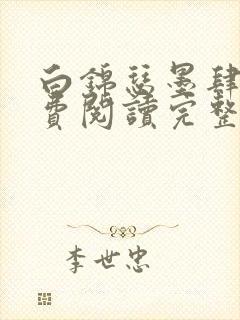 白錦瑟墨肆
費閱讀完整
李世忠